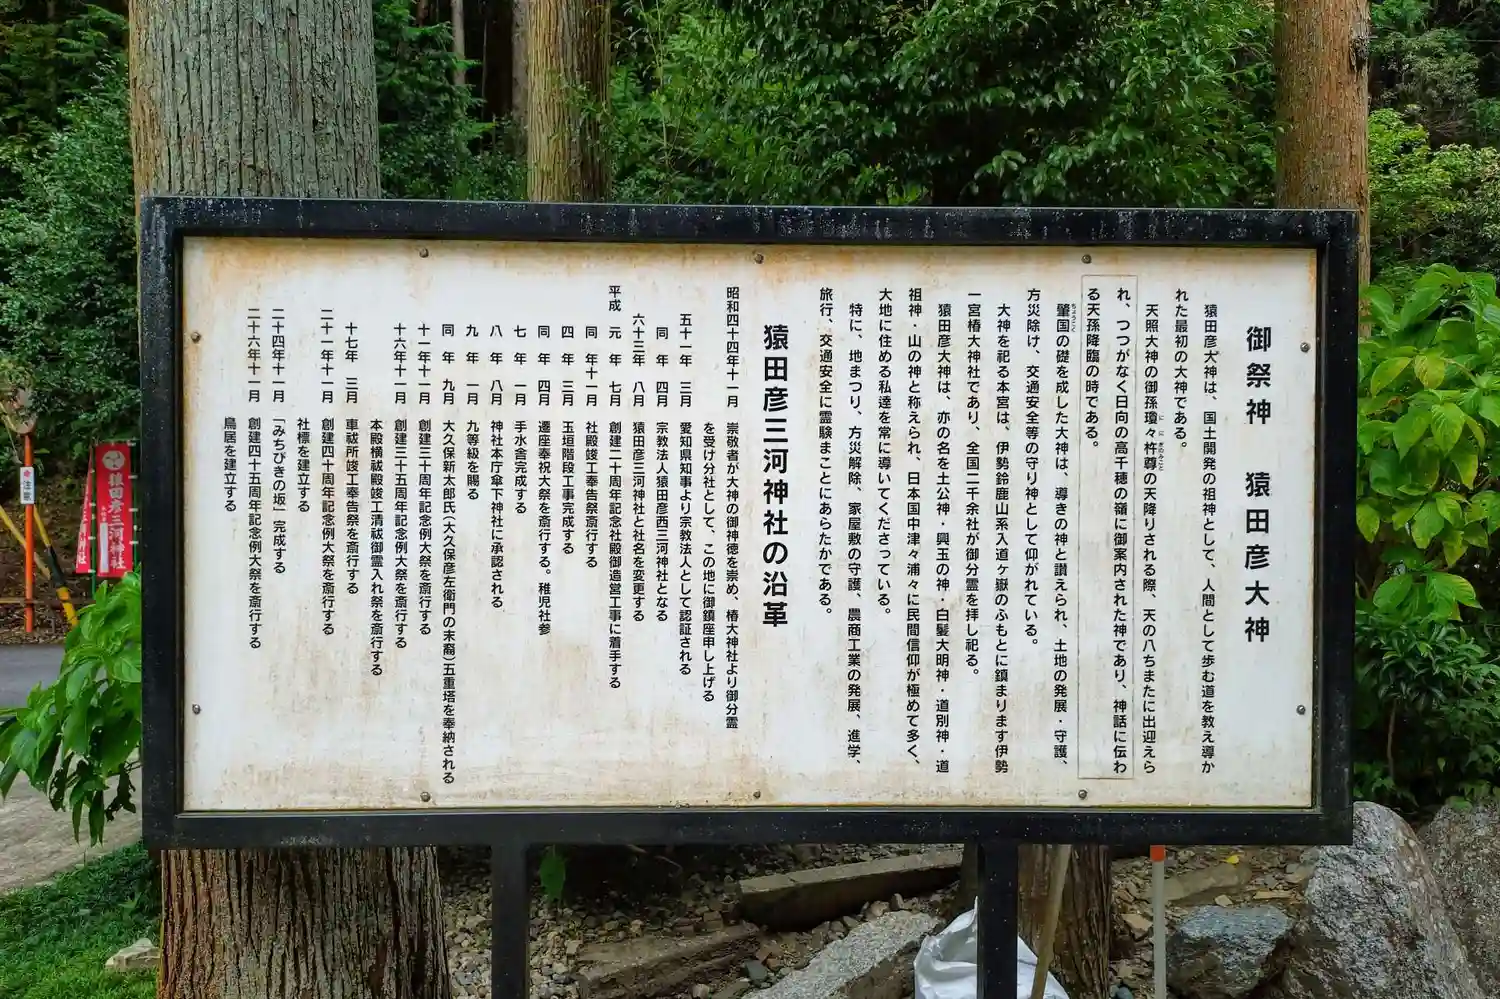 御祭神　猿田彦大神
猿田彦大神は、国土開発の祖神として、人間として歩む道を教え導か
れた最初の大神である。
天照大神の御孫瓊々杵尊の天降りされる際、天の八ちまたに出迎えら
れ、つつがなく日向の高千穂の嶺に御案内された神であり、神話に伝わ
る天孫降臨の時である。
肇国の礎を成した大神は、導きの神と讃えられ、土地の発展・守護、
方災除け、交通安全等の守り神として仰がれている。
大神を祀る本宮は、伊勢鈴鹿山系入道ヶ嶽のふもとに鎮まります伊勢
一宮椿大神社であり、全国二千余社が御分霊を拝し祀る。
猿田彦大神は、亦の名を土公神・興玉の神・白髪大明神・道別神・道
祖神・山の神と称えられ、日本国中津々浦々に民間信仰が極めて多く、
大地に住める私達を常に導いてくださっている。
特に、地まつり、方災解除、家屋敷の守護、農商工業の発展、進学、
旅行、交通安全に霊験まことにあらたかである。
猿田彦三河神社の沿革
昭和四十四年十一月　崇敬者が大神の御神徳を崇め、椿大神社より御分霊
を受け分社として、この地に御鎮座申し上げる
五十一年　三月　愛知県知事より宗教法人として認証される
同　年　四月　宗教法人猿田彦西三河神社となる
六十三年　八月　猿田彦三河神社と社名を変更する
平成　元　年　七月　創建二十周年記念社殿御造営工事に着手する
同　年十一月　社殿竣工奉告祭斎行する
四　年　三月　玉垣階段工事完成する
同　年　四月　遷座奉祝大祭を斎行する。稚児社参
七　年　一月　手水舎完成する
八　年　八月　神社本庁傘下神社に承認される
九　年　一月　九等級を賜る
同　年　九月　大久保新太郎氏（大久保彦左衛門の末裔）五重塔を奉納される
十一年十一月　創建三十周年記念例大祭を斎行する
十六年十一月　創建三十五周年記念例大祭を斎行する
本殿横祓殿竣工清祓御霊入れ祭を斎行する
十七年　三月　車祓所竣工奉告祭を斎行する
二十一年十一月　創建四十周年記念例大祭を斎行する
社標を建立する
二十四年十一月　「みちびきの坂」完成する。
二十六年十一月　創建四十五周年記念例大祭を斎行する
鳥居を建立する
猿田彦三河神社
注意